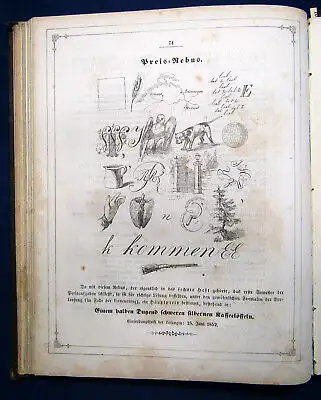 74
Preis-Rebus.
E
n
k kommen EE
Da mit diesem Rebus, der eigentlich in das sechste Heft gehört, das erste Semester der
Preisaufgaben schließt, so ist für richtige Lösung desselben, unter den gewöhnlichen Formalien der Ver-
loosung (im Falle der Concurrenz), ein Hauptpreis bestimmt, bestehend in:
Einem halben Dutzend schweren silbernen Kaffeelöffeln.
Einsendungsfrist der Lösungen: 25. Juni 1852.